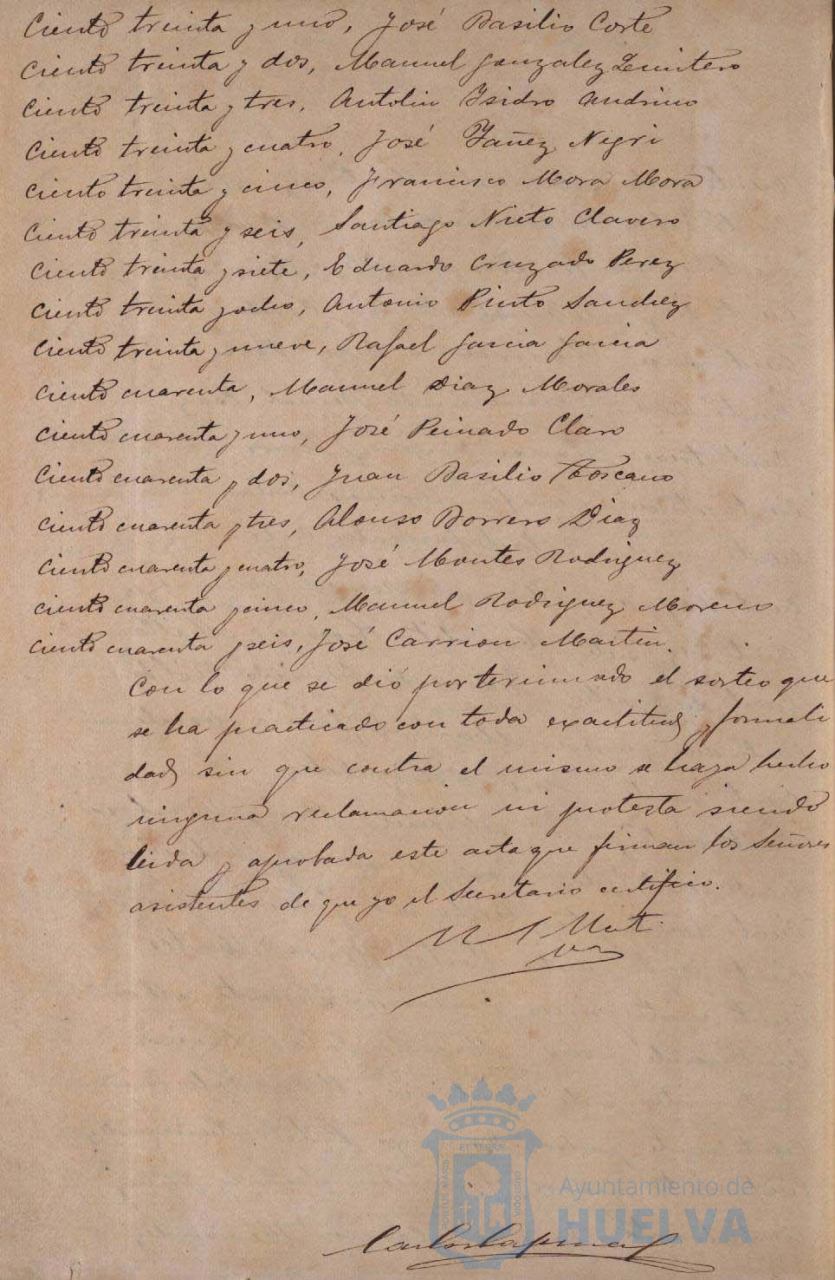 Ciento treinta y uno, José Basilio Corte
Ciento treinta y dos, Manuel Gonzalez Quintero
Ciento treinta y tres, Antolin Ysidro Andrino
Ciento treinta y cuatro, José Yañez Negri
Ciento treinta y cinco, Francisco Mora Mora
Ciento treinta y seis, Santiago Nieto Clavero
Ciento treinta y siete, Eduardo Cruzado Perez
Ciento treinta y ocho, Antonio Pinto Sanchez
Ciento treinta y nueve, Rafael Garcia Garcia
Ciento cuarenta, Manuel Diaz Morales
Ciento cuarenta y uno, José Peinado Claro
Ciento cuarenta y dos, Juan Basilio Toscano
Ciento cuarenta y tres, Alonso Borrero Diaz
Ciento cuarenta y cuatro, José Montes Rodriguez
Ciento cuarenta y cinco, Manuel Rodriguez Moreno
Ciento cuarenta y seis, José Carrion Martin.
Con lo que se dió por terminado el sorteo que
se ha practicado con toda exactitud y formali
dad sin que contra el mismo se haya hecho
ninguna reclamacion ni protesta siendo
leida y aprobada este acta que firman los Señores
asistentes de que yo el Secretario certifico.
Ayuntamiento de
HUELVA